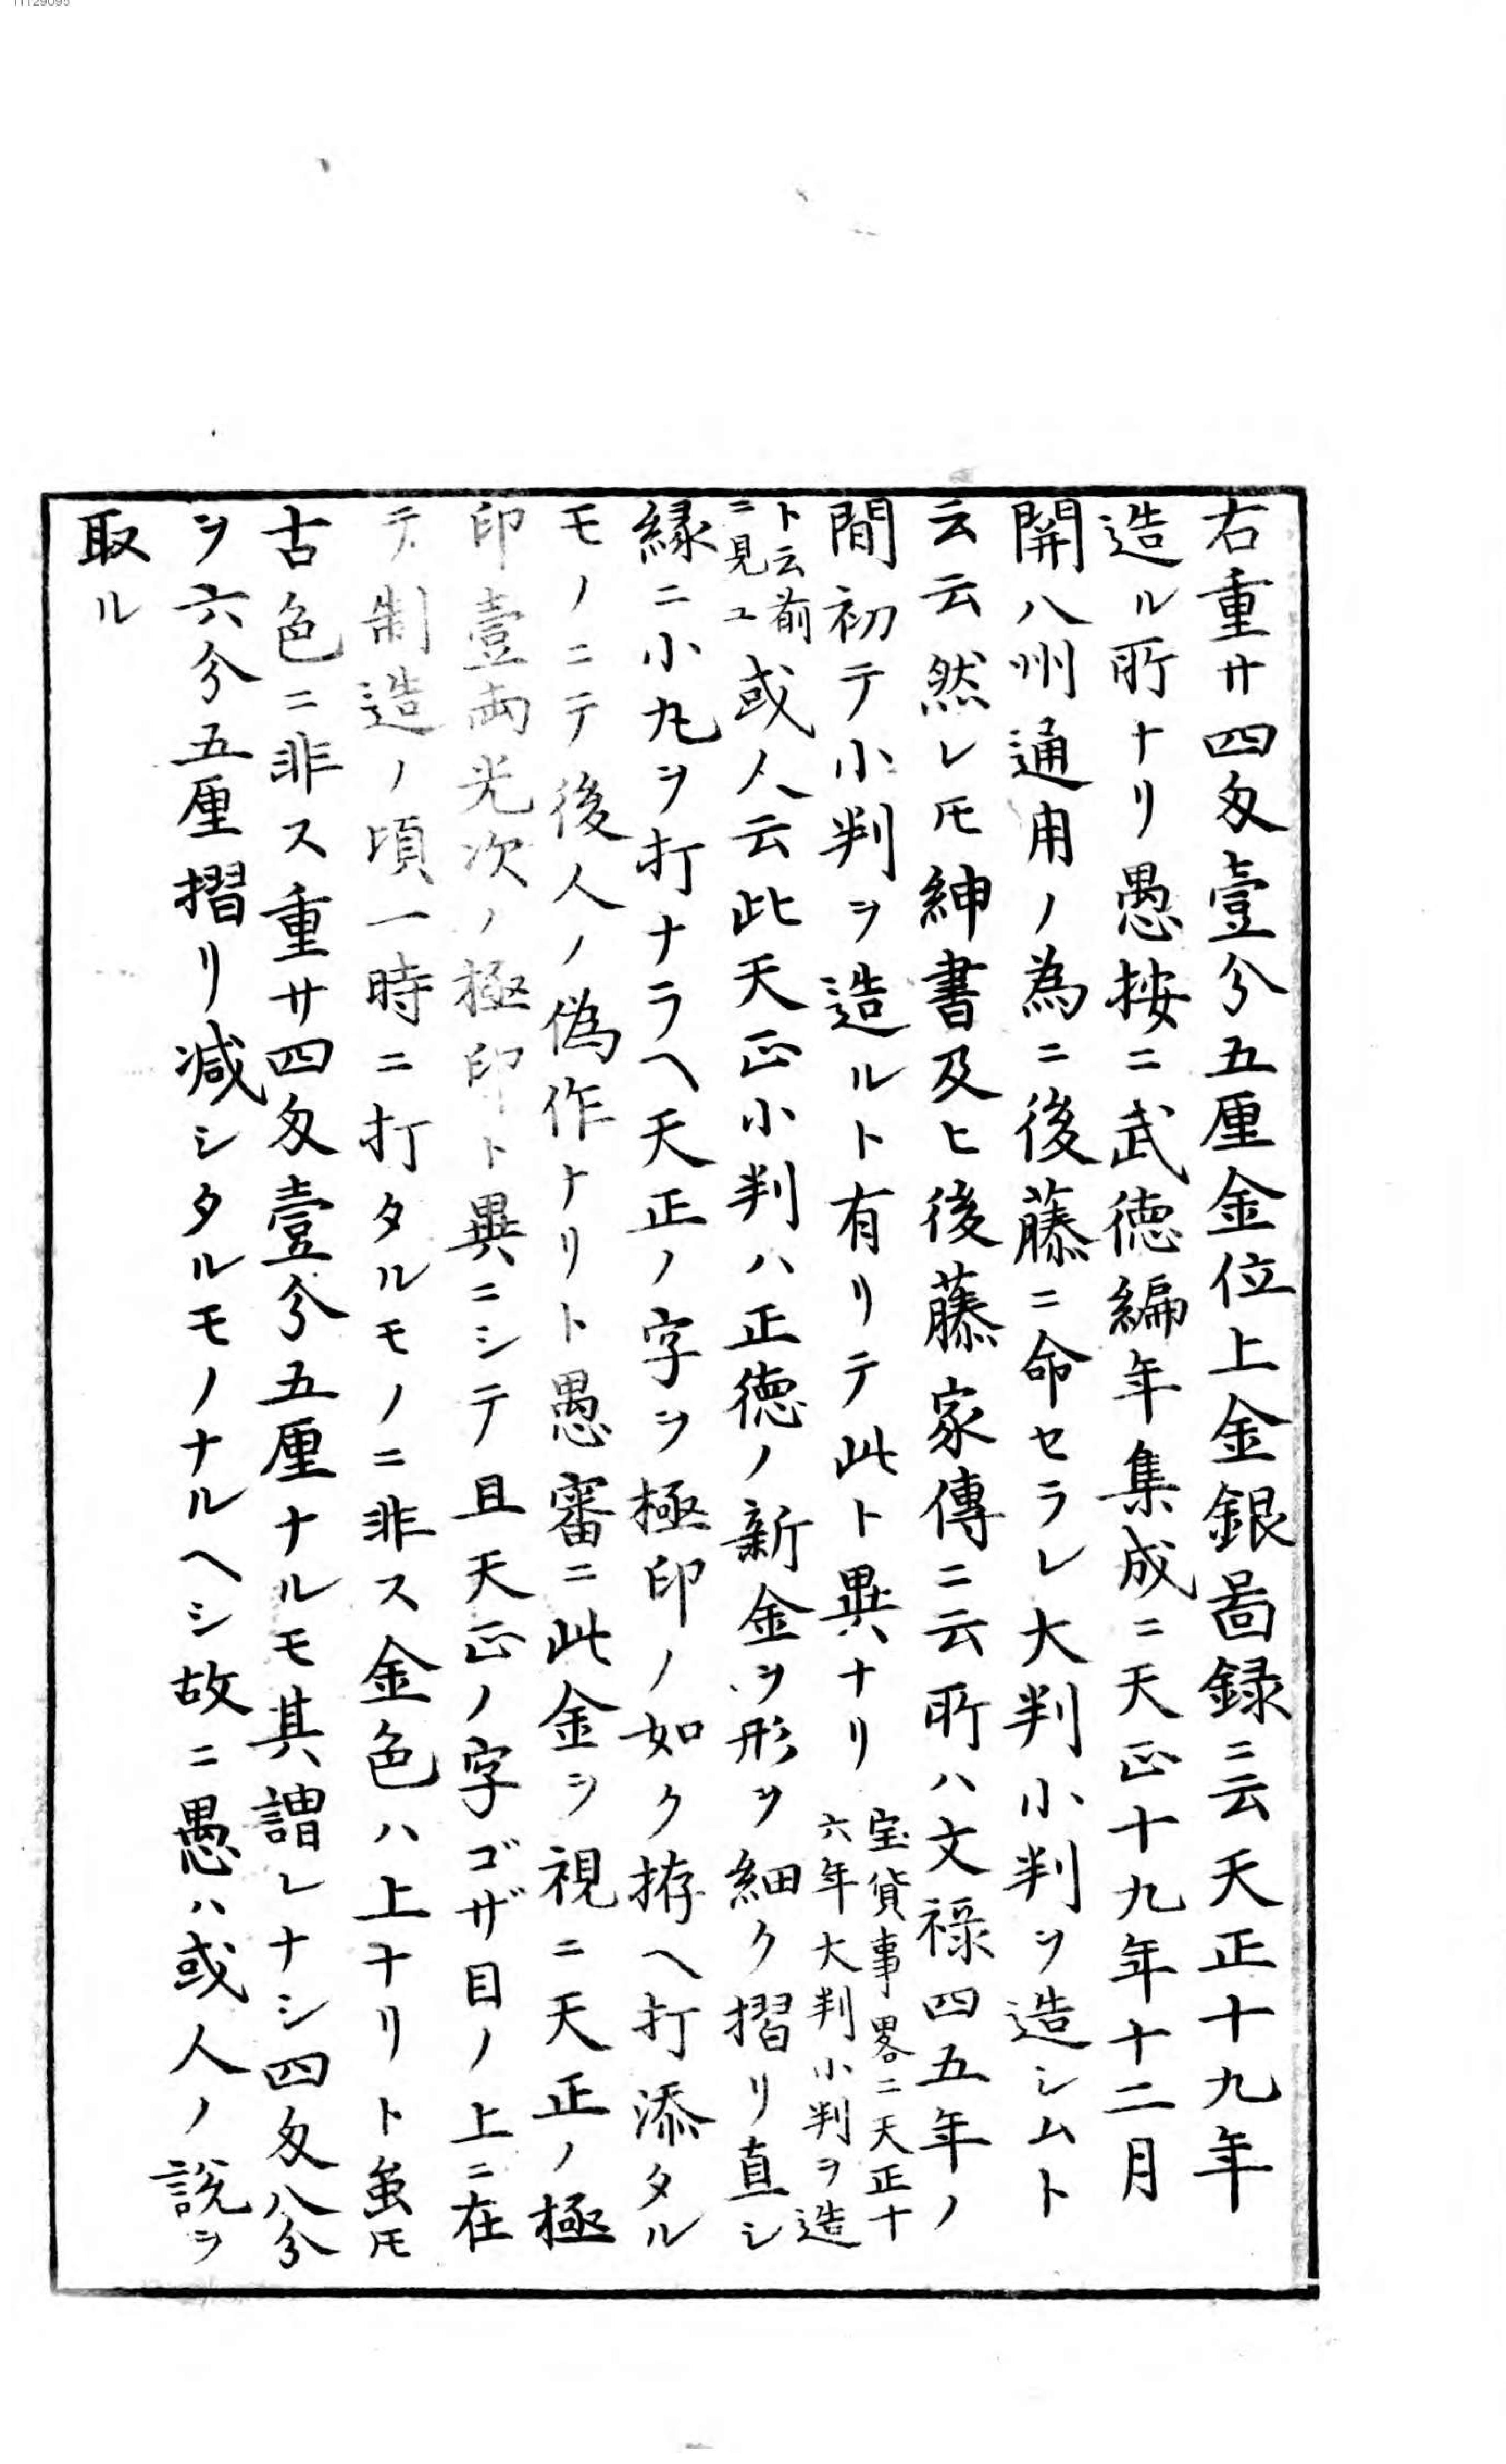 右重廿四匁壹兮五厘金位上金銀啚録ニ云天正十九年
造ル所ナリ愚按ニ武徳編年集成ニ天正十九年十二月
開八州通用ノ為ニ後藤ニ命セラレ大判小判ヲ造シムト
云云然レ𪜈紳書及ヒ後藤家傳ニ云所ハ文禄四五年ノ
間初テ小判ヲ造ルト有リテ此ト異ナリ
宝貨事畧ニ天正十
六年大判小判ヲ造
ト云前
ニ見ユ
或人云此天正小判ハ正徳ノ新金ヲ形ヲ細ク摺リ直シ
縁ニ小丸ヲ打ナラヘ天正ノ字ヲ極印ノ如ク拵ヘ打添タル
モノニテ後人ノ偽作ナリト愚審ニ此金ヲ視ニ天正ノ極
印壹両光次ノ極印ト異ニシテ且天正ノ字ゴザ目ノ上ニ在
テ制造ノ頃一時ニ打タルモノニ非ス金色ハ上ナリト虽𪜈
古色ニ非ス重廿四匁壹兮五厘ナルモ其謂レナシ四匁八兮
ヲ六兮五厘摺リ減シタルモノナルヘシ故ニ愚ハ或人ノ説ヲ
取ル